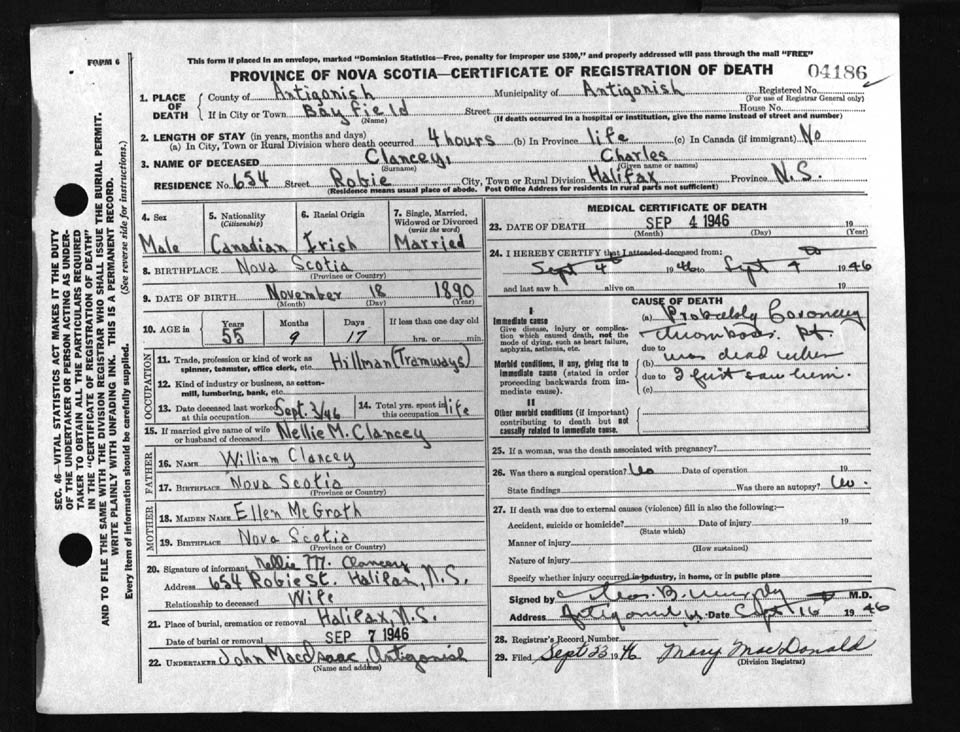 FORM 6
This form if placed in an envelope, marked "Dominion Statistics—Free, penalty for improper use $300," and properly addressed will pass through the mail "FREE"
PROVINCE OF NOVA SCOTIA—CERTIFICATE OF REGISTRATION OF DEATH 04186
1. PLACE OF DEATH
County of Antigonish Municipality of Antigonish Registered No.
(For use of Registrar General only)
If in City or Town Bayfield Street House No.
(Name) (If death occurred in a hospital or institution, give the name instead of street and number)
2. LENGTH OF STAY (in years, months and days)
(a) In City, Town or Rural Division where death occurred 4 hours (b) In Province life (c) In Canada (if immigrant) No
3. NAME OF DECEASED Clancey, Charles
(Surname) (Given name or names)
RESIDENCE No. 654 Street Robie City, Town or Rural Division Halifax Province N.S.
(Residence means usual place of abode. Post Office Address for residents in rural parts not sufficient)
4. Sex
Male
5. Nationality
(Citizenship)
Canadian
6. Racial Origin
Irish
7. Single, Married, Widowed or Divorced
(write the word)
Married
8. BIRTHPLACE Nova Scotia
(Province or Country)
9. DATE OF BIRTH November 18 1890
(Month) (Day) (Year)
10. AGE in
Years Months Days If less than one day old
55 9 17 hrs. or min.
OCCUPATION
11. Trade, profession or kind of work as
spinner, teamster, office clerk, etc. Hillman (Tramways)
12. Kind of industry or business, as cotton-
mill, lumbering, bank, etc.
13. Date deceased last worked
at this occupation Sept. 3/46
14. Total yrs. spent in
this occupation life
15. If married give name of wife
or husband of deceased Nellie M. Clancey
FATHER
16. NAME William Clancey
17. BIRTHPLACE Nova Scotia
(Province or Country)
MOTHER
18. MAIDEN NAME Ellen McGrath
19. BIRTHPLACE Nova Scotia
(Province or Country)
20. Signature of informant Nellie M. Clancey
Address 654 Robie St. Halifax, N.S.
Relationship to deceased Wife
21. Place of burial, cremation or removal Halifax, N.S.
Date of burial or removal SEP 7 1946
22. UNDERTAKER John MacIsaac Antigonish
(Name and address)
MEDICAL CERTIFICATE OF DEATH
23. DATE OF DEATH SEP 4 1946 19
(Month) (Day) (Year)
24. I HEREBY CERTIFY that I attended deceased from:
Sept 4 1946 to Sept 4 1946
and last saw h alive on 19
CAUSE OF DEATH
I
Immediate cause
Give disease, injury or complica-
tion which caused death, not the
mode of dying, such as heart failure,
asphyxia, asthenia, etc.
(a) Probably Coronary
thrombosis. Pt.
due to
Morbid conditions, if any, giving rise to
immediate cause (stated in order
proceeding backwards from im-
mediate cause).
(b) was dead when
due to I first saw him.
(c)
II
Other morbid conditions (if important)
contributing to death but not
causally related to immediate cause.
25. If a woman, was the death associated with pregnancy?
26. Was there a surgical operation? Date of operation 19
State findings Was there an autopsy?
27. If death was due to external causes (violence) fill in also the following:—
Accident, suicide or homicide? Date of injury 19
(State which)
Manner of injury
(How sustained)
Nature of injury
Specify whether injury occurred in industry, in home, or in public place
Signed by B. Murphy M.D.
Address Antigonish Date Sept 16 1946
28. Registrar's Record Number
29. Filed Sept 23 1946 Mary MacDonald
(Division Registrar)
SEC. 46—VITAL STATISTICS ACT MAKES IT THE DUTY
OF THE UNDERTAKER OR PERSON ACTING AS UNDER-
TAKER TO OBTAIN ALL THE PARTICULARS REQUIRED
IN THE "CERTIFICATE OF REGISTRATION OF DEATH"
AND TO FILE THE SAME WITH THE DIVISION REGISTRAR WHO SHALL ISSUE THE BURIAL PERMIT.
WRITE PLAINLY WITH UNFADING INK. THIS IS A PERMANENT RECORD.
Every item of information should be carefully supplied. (See reverse side for instructions.)